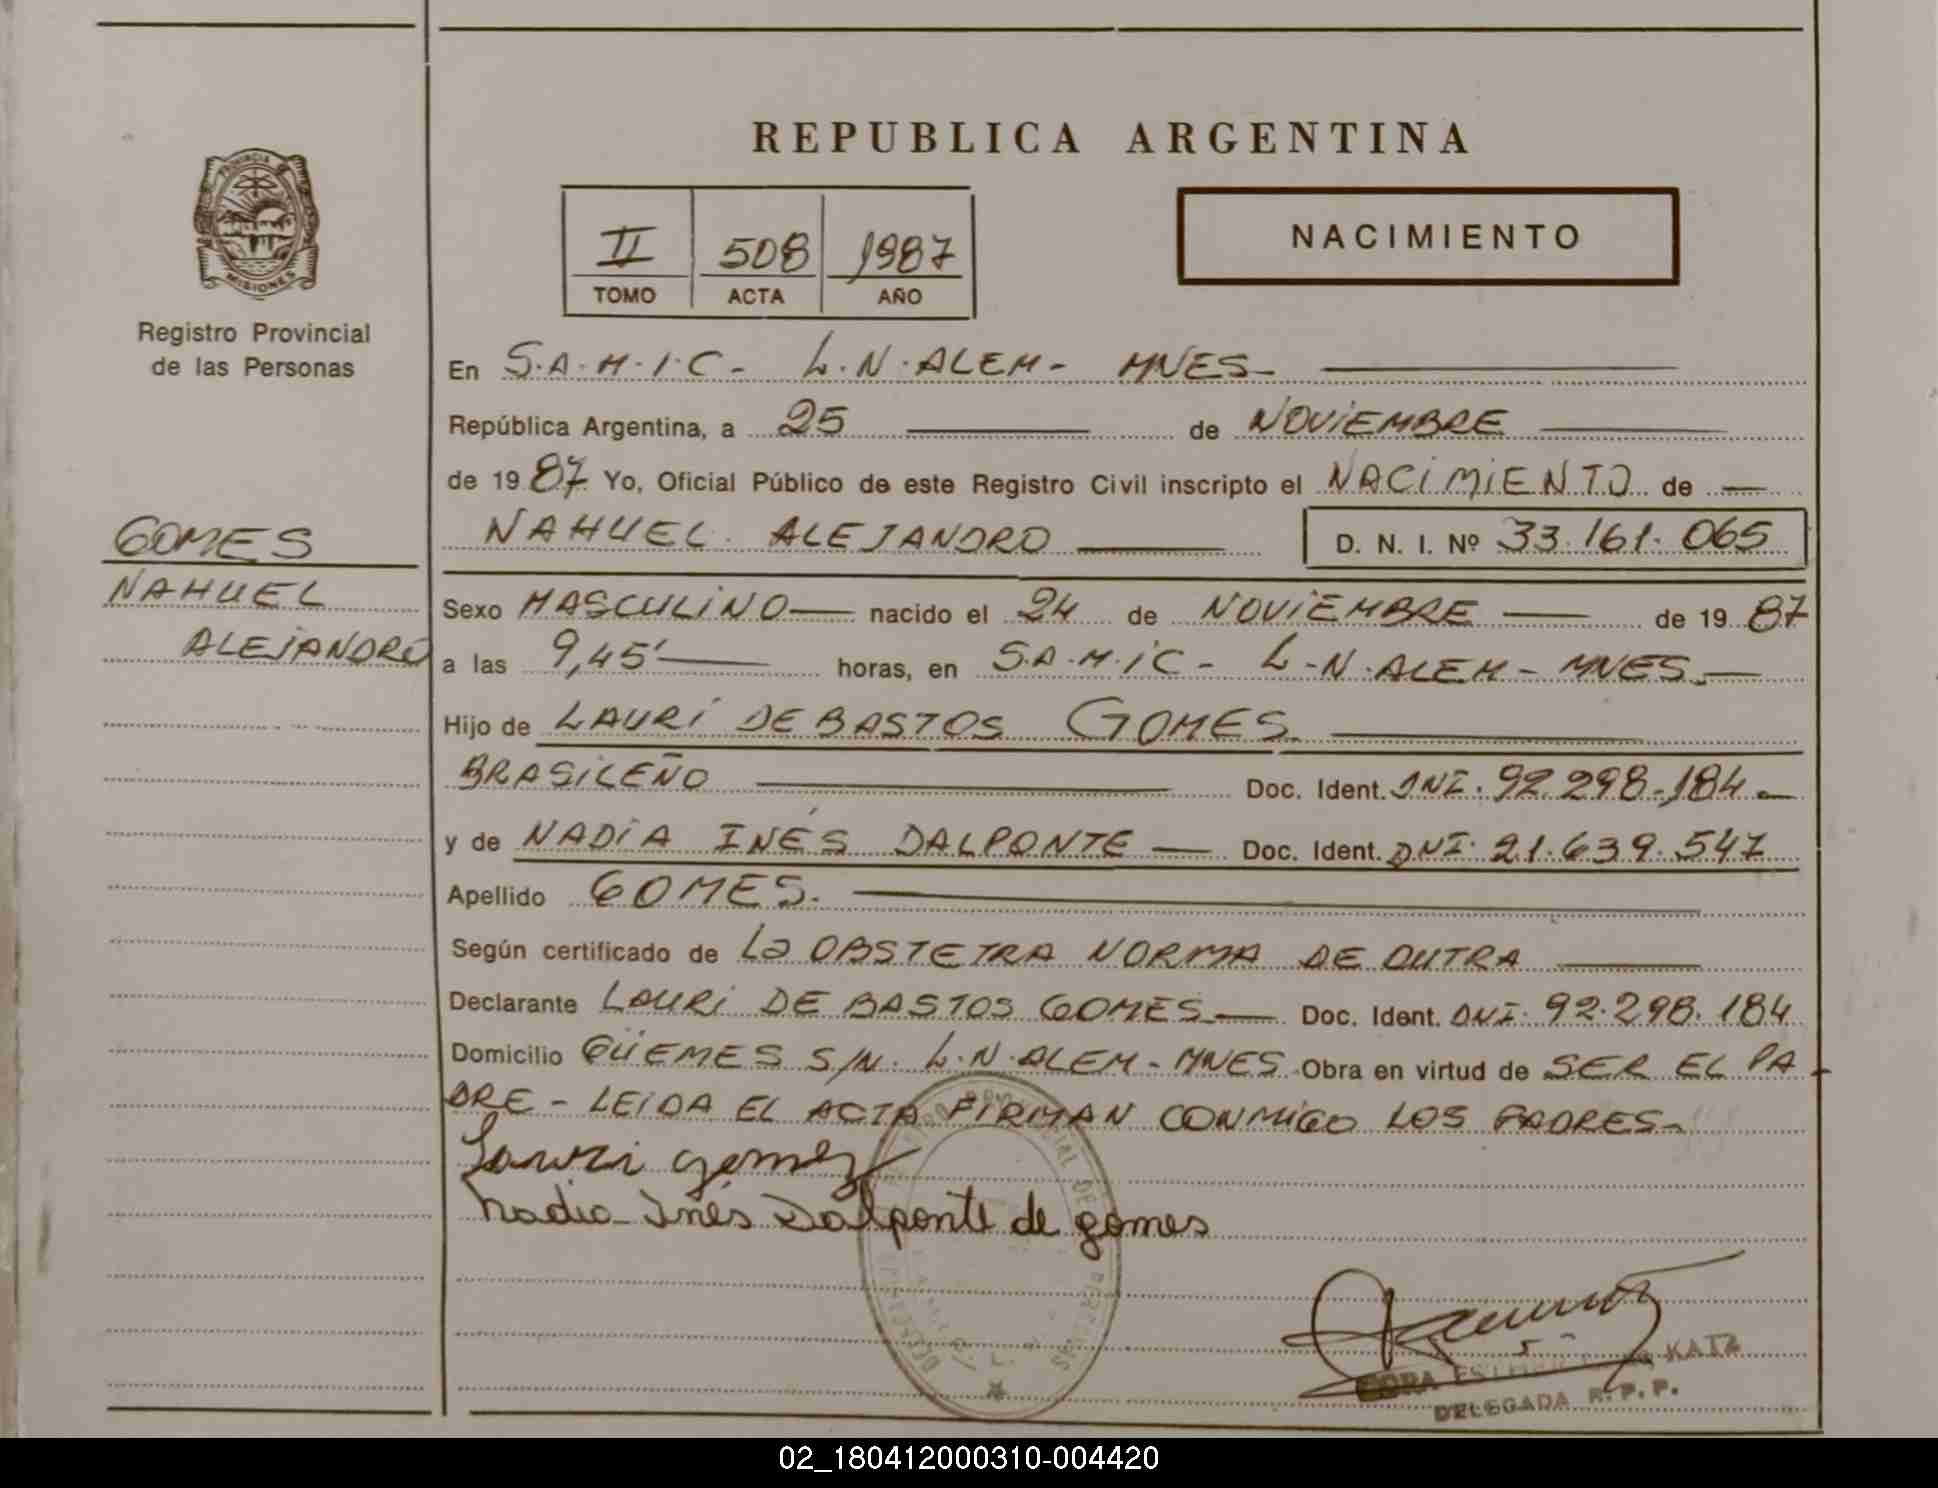 REPUBLICA ARGENTINA
PROVINCIA DE
MISIONES
Registro Provincial
de las Personas
II 508 1987
TOMO ACTA AÑO
NACIMIENTO
En S.A.M.I.C- L.N.ALEM- MNES-
República Argentina, a 25 de NOVIEMBRE
de 1987 Yo, Oficial Público de este Registro Civil inscripto el NACIMIENTO de
NAHUEL ALEJANDRO D. N. I. Nº 33.161.065
GOMES
NAHUEL
ALEJANDRO
Sexo MASCULINO nacido el 24 de NOVIEMBRE de 1987
a las 9,45' horas, en S.A.M.IC- L-N.ALEM-MNES.
Hijo de LAURI DE BASTOS GOMES
BRASILEÑO Doc. Ident. DNI. 92.298.184
y de NADIA INÉS DALPONTE Doc. Ident. DNI. 21.639.547
Apellido GOMES.
Según certificado de La OBSTETRA NORMA DE DUTRA
Declarante LAURI DE BASTOS GOMES Doc. Ident. DNI. 92.298.184
Domicilio GÜEMES S/N. L.N.ALEM-MNES Obra en virtud de SER EL PA-
DRE - LEIDA EL ACTA FIRMAN CONMIGO LOS PADRES-
Lauri gomez
Nadia Inés Dalponte de gomes
KATZ
DELEGADA R.P.P.
02_180412000310-004420